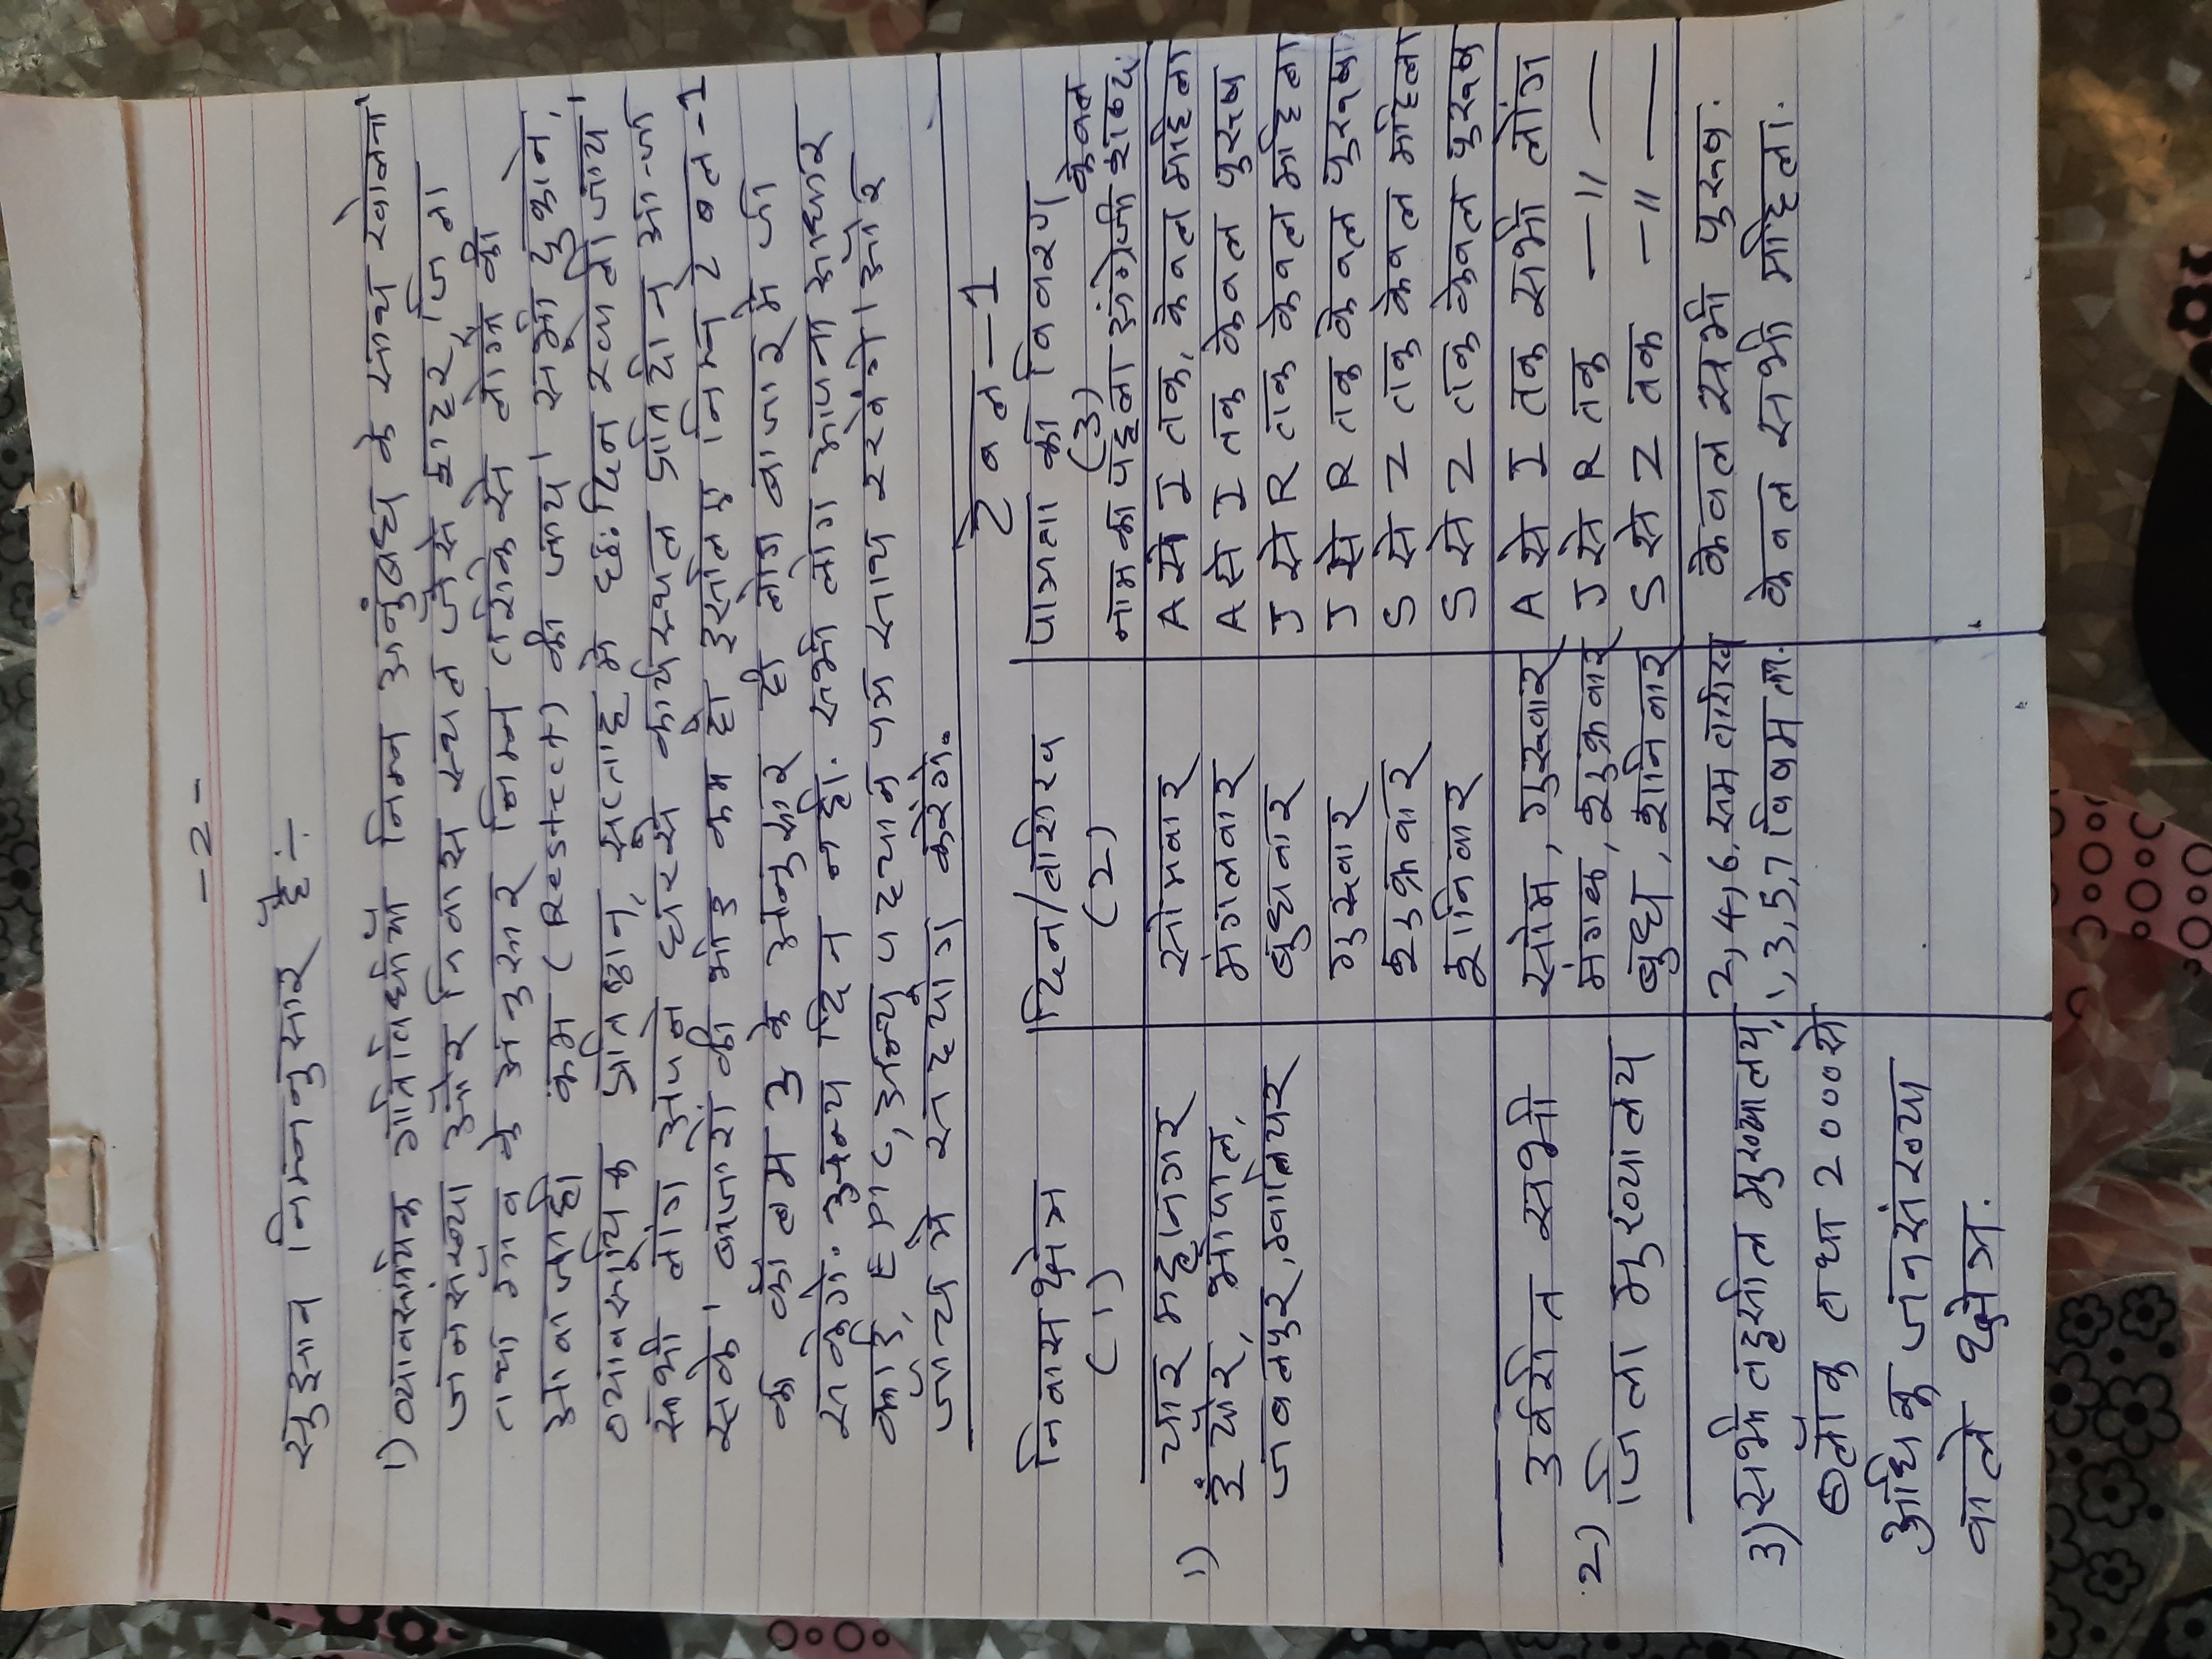 -2-
सुझाव निम्नानुसार हैं:-
1) व्यावसायिक गतिविधीयाँ निम्न अनुंबध के साथ खोलना
जनसंख्या और निवास स्थल जैसे शहर, जिला
तथा गाँव के अनुसार निम्न तरीके से लोगों की
आवाजाही कम (Restrict) की जाय। सभी दुकाने,
व्यावसायिक प्रतिष्ठान, सप्ताह मे छः दिन खुले रखी जाय।
सभी लोग अपने घरसे कार्यस्थल प्रतिदिन आ-जा
सके। बाजारों की भीड कम हो इसलिए निम्न टेबल-1
की कॉलम 3 के अनुसार ही लोग बाजार मे जा
सकेंगे. अन्य दिन नही. सभी लोग अपना आधार
कार्ड, EPIC, अन्य पहचान पत्र साथ रखेंगे। और
जाँच मे सहयोग करेंगे.
टेबल-1
निवास क्षेत्र | दिन/तारीख | पात्रता का विवरण केवल
(1) | (2) | (3) नाम का पहला अंग्रेजी शब्द.
1) चार महानगर | सोमवार | A से I तक, केवल महिला
इंदौर, भोपाल, | मंगलवार | A से I तक केवल पुरुष
जबलपुर, ग्वालियर | बुधवार | J से R तक केवल महिला
गुरुवार | J से R तक केवल पुरुष
शुक्रवार | S से Z तक केवल महिला
शनिवार | S से Z तक केवल पुरुष
उर्वरित सभी | सोम, गुरुवार | A से I तक सभी लोग
2) जिला मुख्यालय | मंगल, शुक्रवार | J से R तक —〃—
बुध, शनिवार | S से Z तक —〃—
3) सभी तहसील मुख्यालय, | 2,4,6, सम तारीख | केवल सभी पुरुष.
ब्लॉक तथा 20000 से | 1,3,5,7 विषम ता. | केवल सभी महिला.
अधिक जनसंख्या
वाले क्षेत्र.